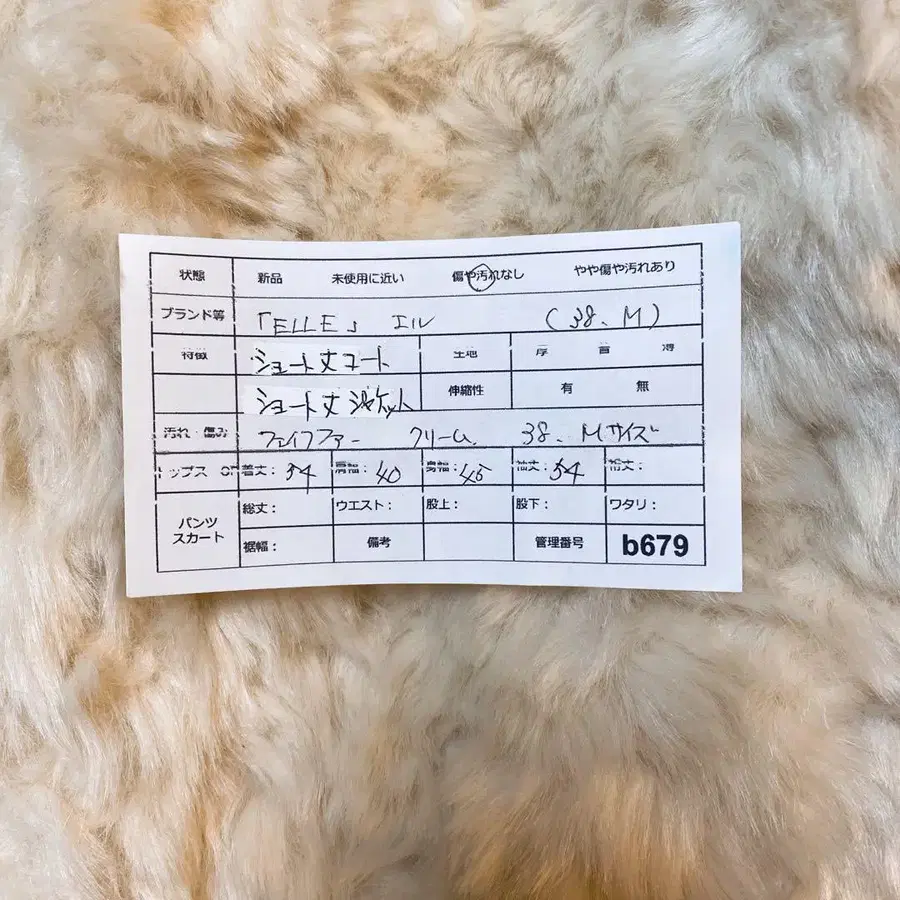 状態 新品 未使用に近い 傷や汚れなし やや傷や汚れあり
ブランド等 「ELLE」 エル (38、M)
特徴 ショート丈コート 生地 厚 普 薄
ショート丈ジャケット 伸縮性 有 無
汚れ・傷み フェイクファー クリーム 38、Mサイズ
トップス 着丈: 54 肩幅: 40 身幅: 45 袖丈: 54 裄丈:
パンツ スカート 総丈: ウエスト: 股上: 股下: ワタリ:
裾幅: 備考 管理番号 b679